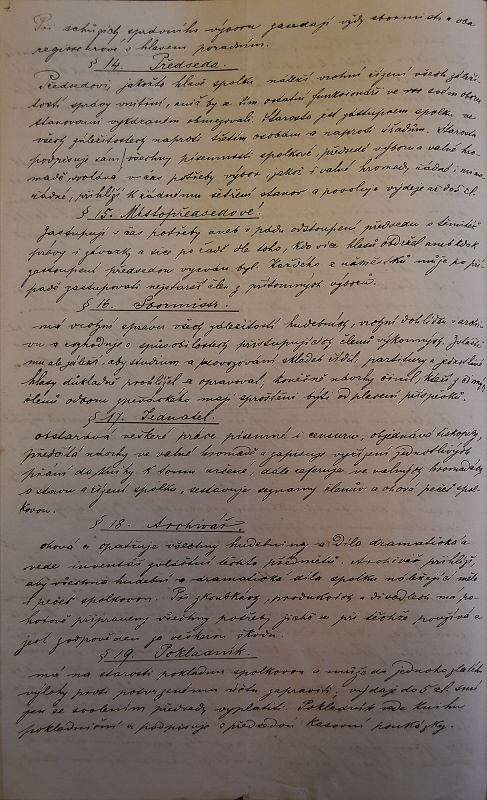 Při schůzích správního výboru zasedají vždy sbormistr a oba
registrátorové s hlasem poradním.
§ 14. Předseda.
Předsedovi, jakožto hlavě spolku náleží vrchní řízení všech záleži-
tostí správy vnitřní, aniž by a tím ostatní funkcionáři ve svém oboru
stanovami vykázaném obmezovali. Starosta jest zástupcem spolku ve
všech záležitostech naproti třetím osobám a naproti úřadům. Starosta
podpisuje sám všechny písemnosti spolkové, předsedá výboru a valné hro-
madě, svolává v čas potřeby výbor, jakož i valné hromady řádné i mimo-
řádné, přihlíží k řádnému šetření stanov a povoluje výdeje až do 5 zl.
§ 15. Místopředsedové:
Zastupují v čas potřeby aneb v pádu odstoupení předsedu s těmitéž
právy i závazky a sice po řadě dle toho, kdo více hlasů obdržel aneb kdo k
zastoupení předsedou vyzván byl. Každého z náměstků může po pří-
padě zastupovati nejstarší člen z přítomných výborů.
§ 16. Sbormistr.
má vrchní správu všech záležitostí hudebních, vrchní dohlídku v archi-
vu a rozhoduje o způsobilosti přistupujících členů výkonných. Zvláště
mu ale záleží, aby studium a provozování skladeb řídil, partitury a jednotlivé
hlasy důkladně prohlížel a opravoval, konečně návrhy činil, kteří z
členů odboru zpěváckého mají sproštěni býti od placení příspěvků.
§ 17. Jednatel.
obstarává veškeré práce písemné i censuru, objednává tiskopisy,
předčítá návrhy ve valné hromadě a zapisuje vyřízení jednotlivých
přání do knihy k tomu určené, dále referuje ve valných hromadách
o stavu a řízení spolku, sestavuje seznamy členův a chová pečeť spol-
kovou.
§ 18. Archivář
chová a opatruje všechny hudebniny a Díla dramatická a
vede inventář zvláštní těchto předmětů. Archivář přihlíží,
aby všechna hudební a dramatická díla spolku náležející měla
pečeť spolkovou. Při zkouškách, produkcích a divadlech má po-
hotově připraveny všechny potřeby, jichž se při těchže používá a
jest zodpověden za veškerou škodu.
§ 19. Pokladník.
má na starosti pokladnu spolkovou a může do jednoho zlatého
výlohy proti potvrzenému účtu zapraviti; výdaj do 5 zl. smí
jen se svolením předsedy vyplatiti. Pokladník vede knihu
pokladniční a podpisuje s předsedou kasovní poukázky.